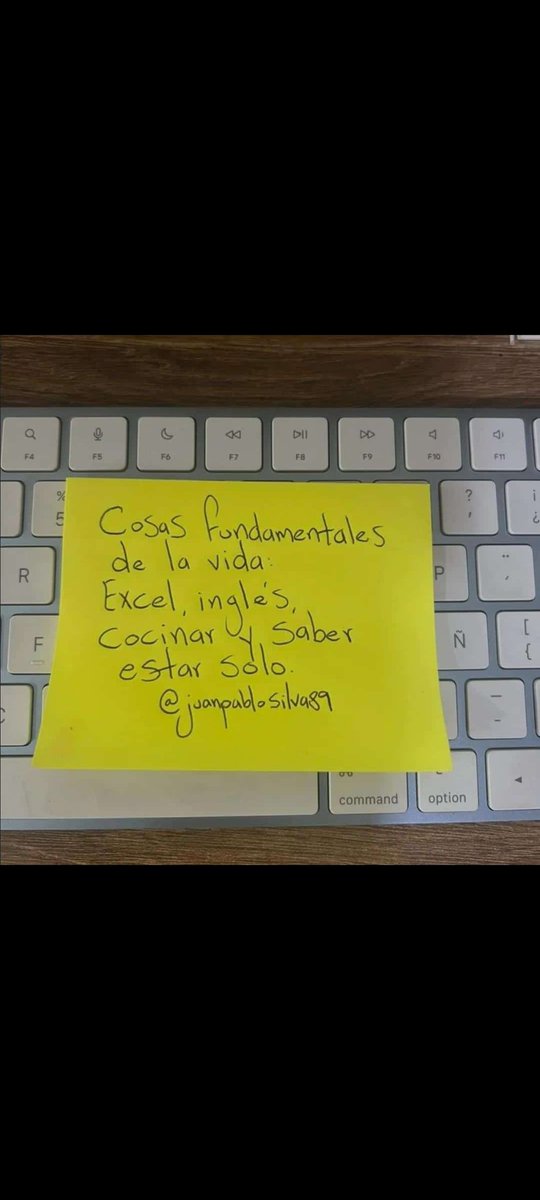 F4 F5 F6 F7 F8 F9 F10 F11
%
5
?
'
¡
¿
R
P
F
Ñ
[
{
command
option
Cosas fundamentales
de la vida:
Excel, inglés,
cocinar y saber
estar solo.
@juanpablosilva89